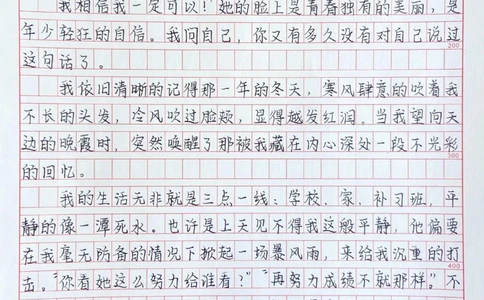 我相信我一定可以!她的脸上是青春独有的美丽,是
年少轻狂的自信。我问自己,你又有多久没有对自己说过
这句话了。
200
我依旧清晰的记得那一年的冬天,寒风肆意的吹着我
不长的头发,冷风吹过脸颊,显得越发红润。当我望向天
边的晚霞时,突然唤醒了那被我藏在内心深处一段不光彩
300
的回忆。
我的生活无非就是三点一线:学校、家、补习班,平
静的像一潭死水。也许是上天见不得我这般平静,他偏要
在我毫无防备的情况下掀起一场暴风雨,来给我沉重的打
400
击。“你看她这么努力给谁看?”“再努力成绩不就那样”。不